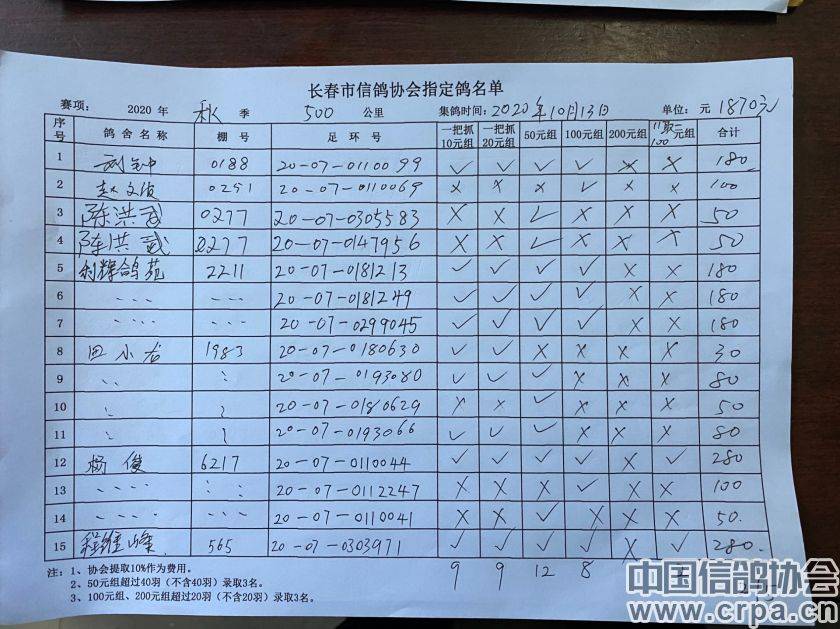 长春市信鸽协会指定鸽名单
赛项： 2020 年 秋 季 500 公里 集鸽时间：2020年10月13日 单位：元 1870元
序号 鸽舍名称 棚号 足环号 一把抓10元组 一把抓20元组 50元组 100元组 200元组 11取二100元组 合计
1 0188 20-07-0110099 ✓ ✓ ✓ ✓ × × 180
2 赵文俊 0251 20-07-0110069 × × × ✓ × × 100
3 陈洪武 0277 20-07-0305583 × × ✓ × × × 50
4 陈洪武 0277 20-07-0147956 × × ✓ × × × 50
5 利辉鸽苑 2211 20-07-0181213 ✓ ✓ ✓ ✓ × × 180
6 20-07-0181249 ✓ ✓ ✓ ✓ × × 180
7 20-07-0299045 ✓ ✓ ✓ ✓ × × 180
8 田小龙 1983 20-07-0180630 ✓ ✓ × × × × 30
9 20-07-0193080 ✓ ✓ ✓ × × × 80
10 20-07-0180629 × × ✓ × × × 50
11 20-07-0193066 ✓ ✓ ✓ × × × 80
12 杨俊 6217 20-07-0110044 ✓ ✓ ✓ ✓ × ✓ 280
13 20-07-0112247 × × × ✓ × × 100
14 20-07-0110041 × × ✓ × × × 50.
15 程维峰 565 20-07-0303971 ✓ ✓ ✓ ✓ × ✓ 280.
注：1、协会提取10%作为费用。 9 9 12 8
2、50元组超过40羽（不含40羽）录取3名。
3、100元组、200元组超过20羽（不含20羽）录取3名。
中国信鸽协会
www.crpa.cn